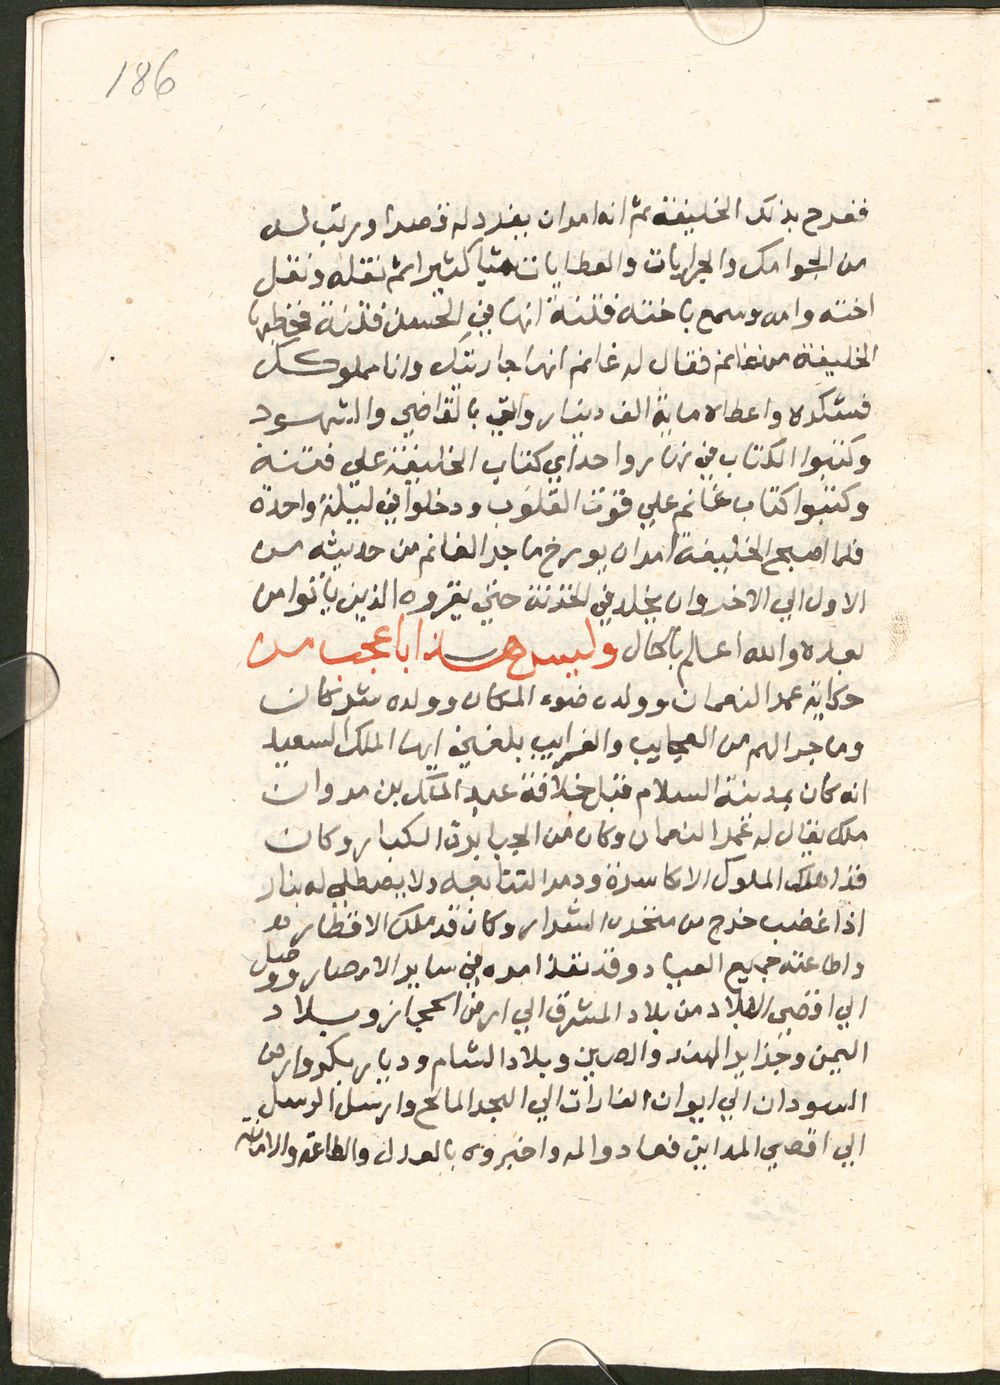 186
ففرح بذلك الخليفة ثم انه امر ان يفرد له قصرا ورتب له
من الجوامك والجرايات والعطايات شيا كثيرا ثم نقله ونقل
اخته وامه وسمع باخته فتنة انها في الحسن فتنة فخطبها
الخليفة من غانم فقال له غانم انها جاريتك وانا مملوكك
فشكره واعطاه ماية الف دينار واتي بالقاضي والشهود
وكتبوا الكتاب في نهار واحد اي كتاب الخليفة علي فتنة
وكتبوا كتاب غانم علي قوت القلوب ودخلوا في ليلة واحدة
فلما اصبح الخليفة امر ان يورخ ما جرا لغانم من حديثه من
الاول الي الاخر وان يخلد في الخزنة حتي يقروه الذين ياتوا من
بعده والله اعالم بالحال وليس هذا باعجب من
حكاية عمر النعمان وولده ضوء المكان وولده شركان
وما جرا لهم من العجايب والغرايب بلغني ايها الملك السعيد
انه كان بمدينة السلام قبل خلافة عبد الملك بن مروان
ملك يقال له عمر النعمان وكان من الجبابرة الكبار وكان
قد املك الملوك الاكاسرة والتتابعه ولا يصطلي له بنار
اذا غضب خرج من منخره الشرار وكان قد ملك الاقطار
واطاعته جميع العباد وقد نفذ امره في ساير الامصار ووصل
الي اقصي البلاد من بلاد المشرق الي ارض الحجاز وبلاد
اليمن وجزاير الهند والصين وبلاد الشام وديار بكر وارض
السودان الي ايوان الفارات الي البحر المالح وارسل الرسل
الي اقصي المداين فعادوا له واخبروه بالعدل والطاعة والامانة